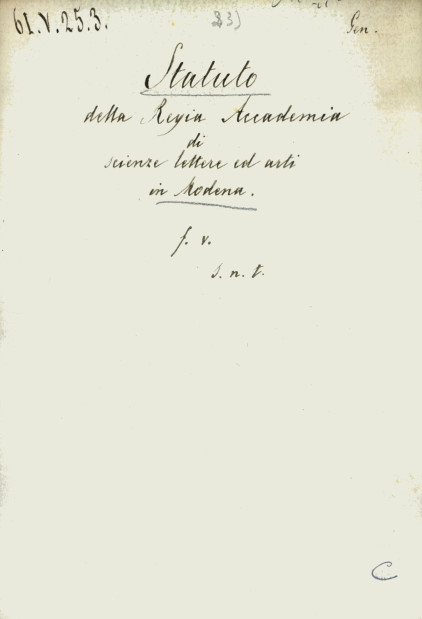 61.V.25.3.
Gen.
Statuto
della Regia Accademia
di
scienze lettere ed arti
in Modena.
f. v.
s. n. t.
C